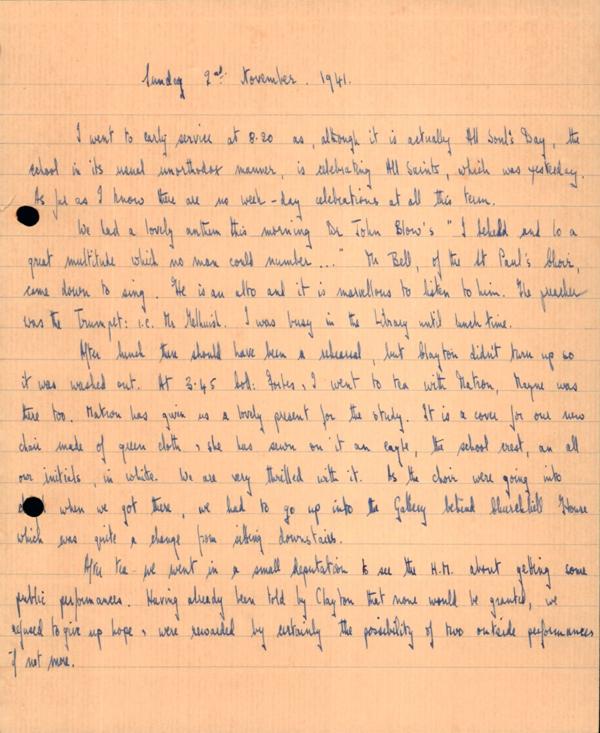 Sunday 2nd November. 1941.
I went to early service at 8.20 as, although it is actually All Soul's Day, the
school in its usual unorthodox manner, is celebrating All Saints, which was yesterday.
As far as I know there are no week-day celebrations at all this term.
We had a lovely anthem this morning Dr John Blow's "I beheld and lo a
great multitude which no man could number..." Mr Bell, of the St Paul's Choir,
came down to sing. He is an alto and it is marvellous to listen to him. The preacher
was the Trumpet: i.e. Mr I was busy in the Library until lunch time.
After lunch there should have been a rehearsal, but Clayton didn't turn up so
it was washed out. At 3.45 Forbes, I went to tea with Matron, Mayne was
there too. Matron has given us a lovely present for the study. It is a cover for our new
chair made of green cloth, she has sewn on it an eagle, the school crest, an all
our initials, in white. We are very thrilled with it. As the choir were going into
when we got there, we had to go up into the Gallery behind House
which was quite a change from sitting downstairs.
After tea we went in a small deputation to see the H.M. about getting some
public performances. Having already been told by Clayton that none would be granted, we
refused to give up hope, were rewarded by certainly the possibility of two outside performances
if not more.